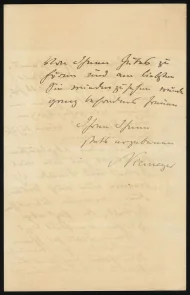 Von Ihnen Gutes zu
hören und am liebsten
Sie wiederzusehen würde
ganz besonders freuen
Ihren Ihnen
stets ergebenen